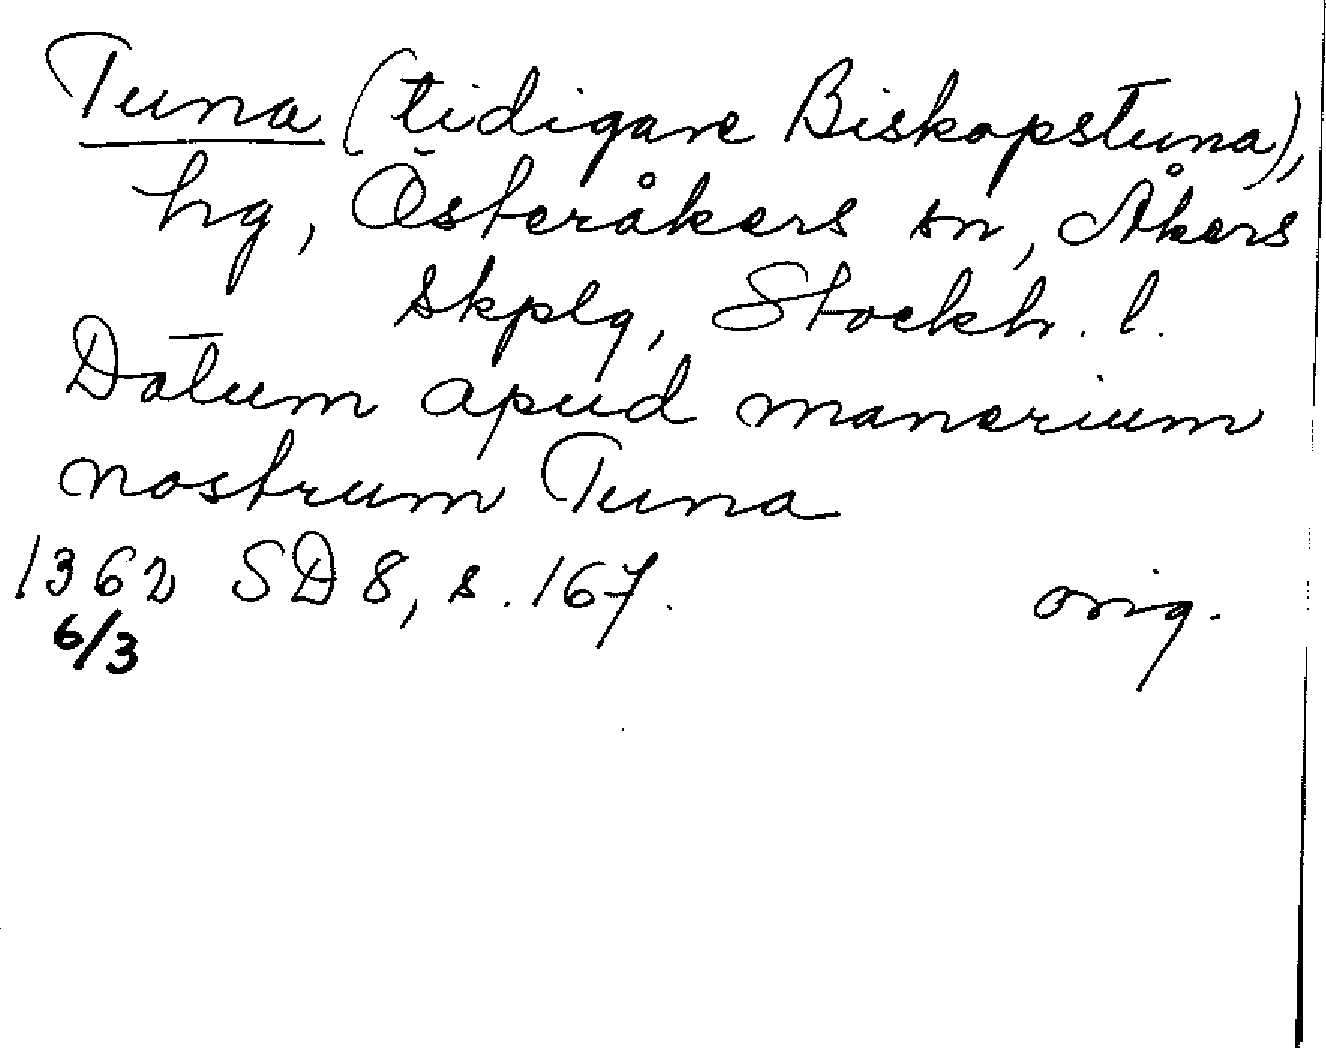 Tuna (tidigare Biskopstuna),
hg, Österåkers sn, Åkers
skplg, Stockh. l.
Datum apud manerium
nostrum Tuna
1362 SD 8, s. 167. orig.
6/3